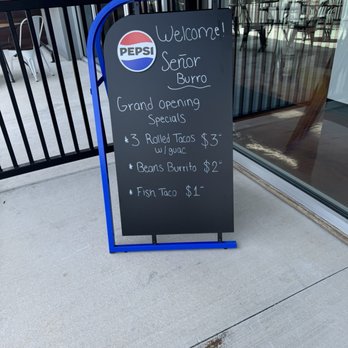 Welcome!
PEPSI
Señor
Burro
Grand opening
Specials
* 3 Rolled Tacos $3-
w/guac
* Beans Burrito $2-
* Fish Taco $1-